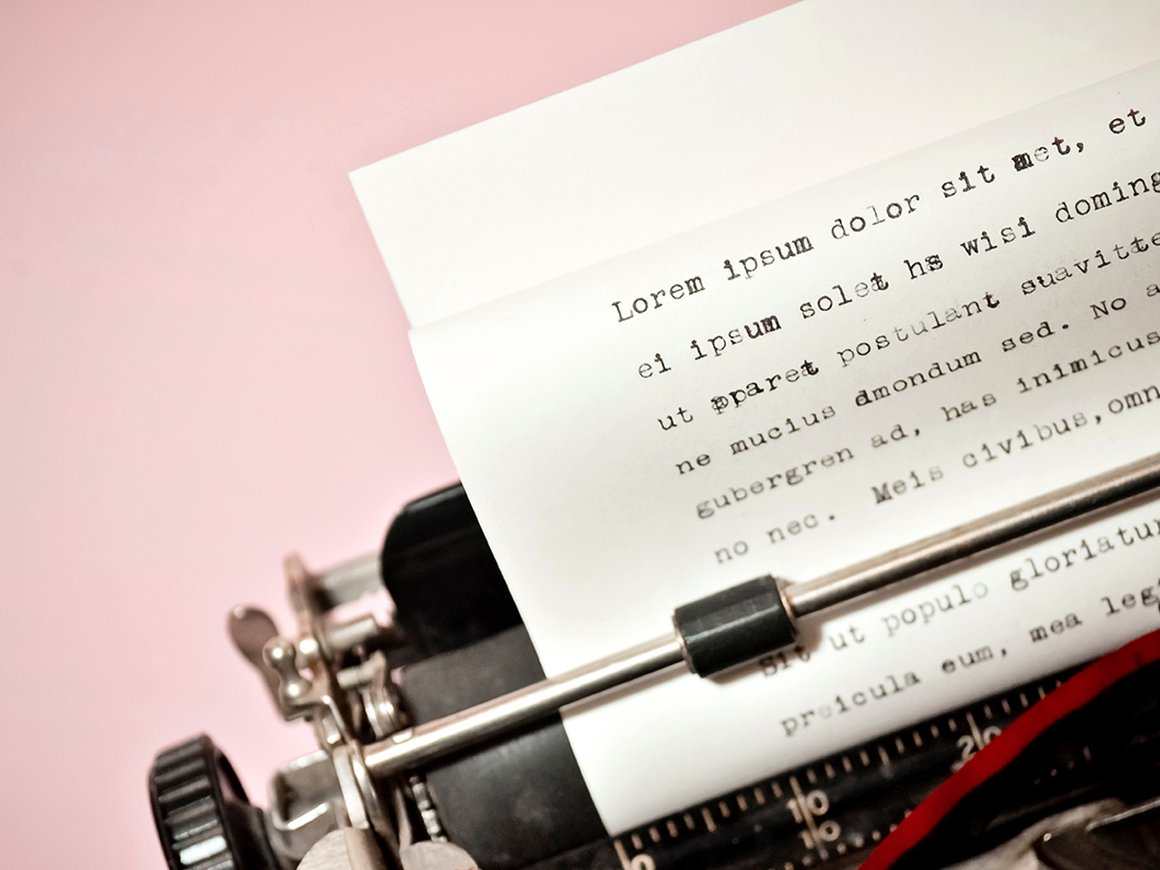 Lorem ipsum dolor sit met, et
ei ipsum solet hs wisi doming
ut pparet postulant suavitte
ne mucius dmondum sed. No a
gubergren ad, has inimicus
no nec. Meis civibus,omn
Sit ut populo gloriatur
preicula eum, mea legi
0 10 20
10